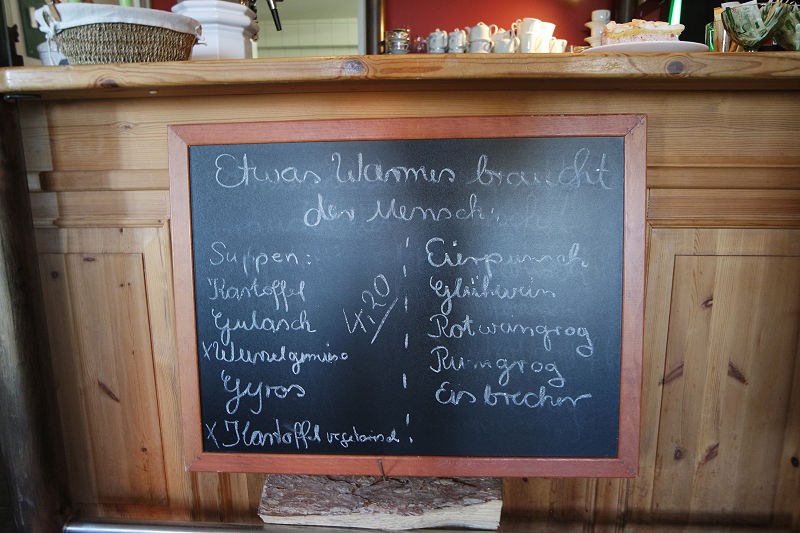 Etwas Warmes braucht
der Mensch:
Suppen:
Kartoffel
Gulasch
x Wurzelgemüse
Gyros
x Kartoffel vegetarisch
4,20
Eierpunsch
Glühwein
Rotweingrog
Rumgrog
Eisbrecher